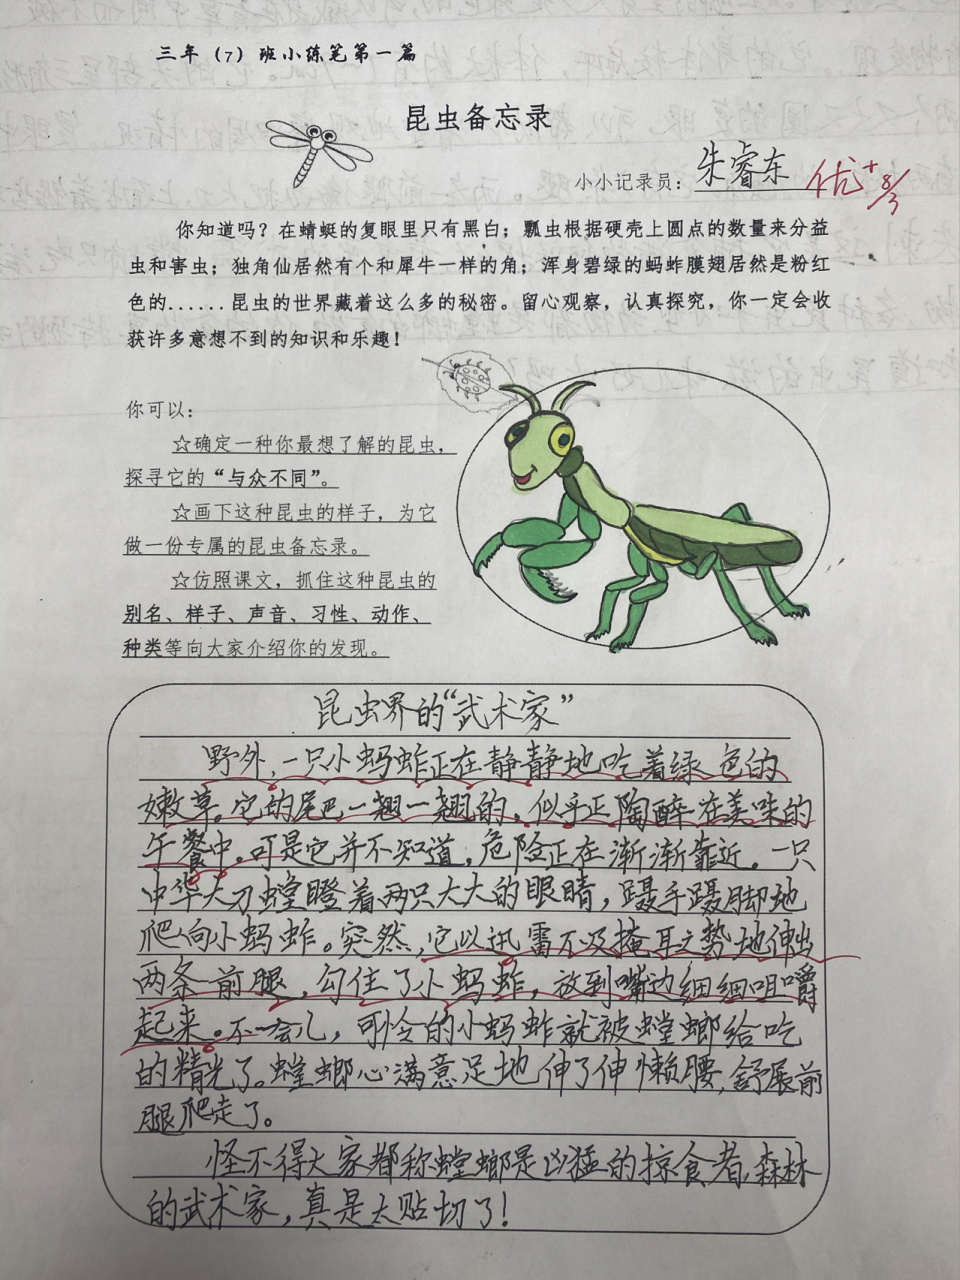 三年（7）班小练笔第一篇
昆虫备忘录
小小记录员：朱睿东 优+ 8/3
你知道吗？在蜻蜓的复眼里只有黑白；瓢虫根据硬壳上圆点的数量来分益
虫和害虫；独角仙居然有个和犀牛一样的角；浑身碧绿的蚂蚱膜翅居然是粉红
色的......昆虫的世界藏着这么多的秘密。留心观察，认真探究，你一定会收
获许多意想不到的知识和乐趣！
你可以：
☆确定一种你最想了解的昆虫，
探寻它的“与众不同”。
☆画下这种昆虫的样子，为它
做一份专属的昆虫备忘录。
☆仿照课文，抓住这种昆虫的
别名、样子、声音、习性、动作、
种类等向大家介绍你的发现。
昆虫界的“武术家”
野外，一只小蚂蚱正在静静地吃着绿色的
嫩草。它的尾巴一翘一翘的，似乎正陶醉在美味的
午餐中。可是它并不知道，危险正在渐渐靠近。一只
中华大刀螳瞪着两只大大的眼睛，蹑手蹑脚地
爬向小蚂蚱。突然，它以迅雷不及掩耳之势地伸出
两条前腿，勾住了小蚂蚱，放到嘴边细细咀嚼
起来。不一会儿，可怜的小蚂蚱就被螳螂给吃
的精光了。螳螂心满意足地伸了伸懒腰，舒展前
腿爬走了。
怪不得大家都称螳螂是凶猛的掠食者，森林
的武术家，真是太贴切了！